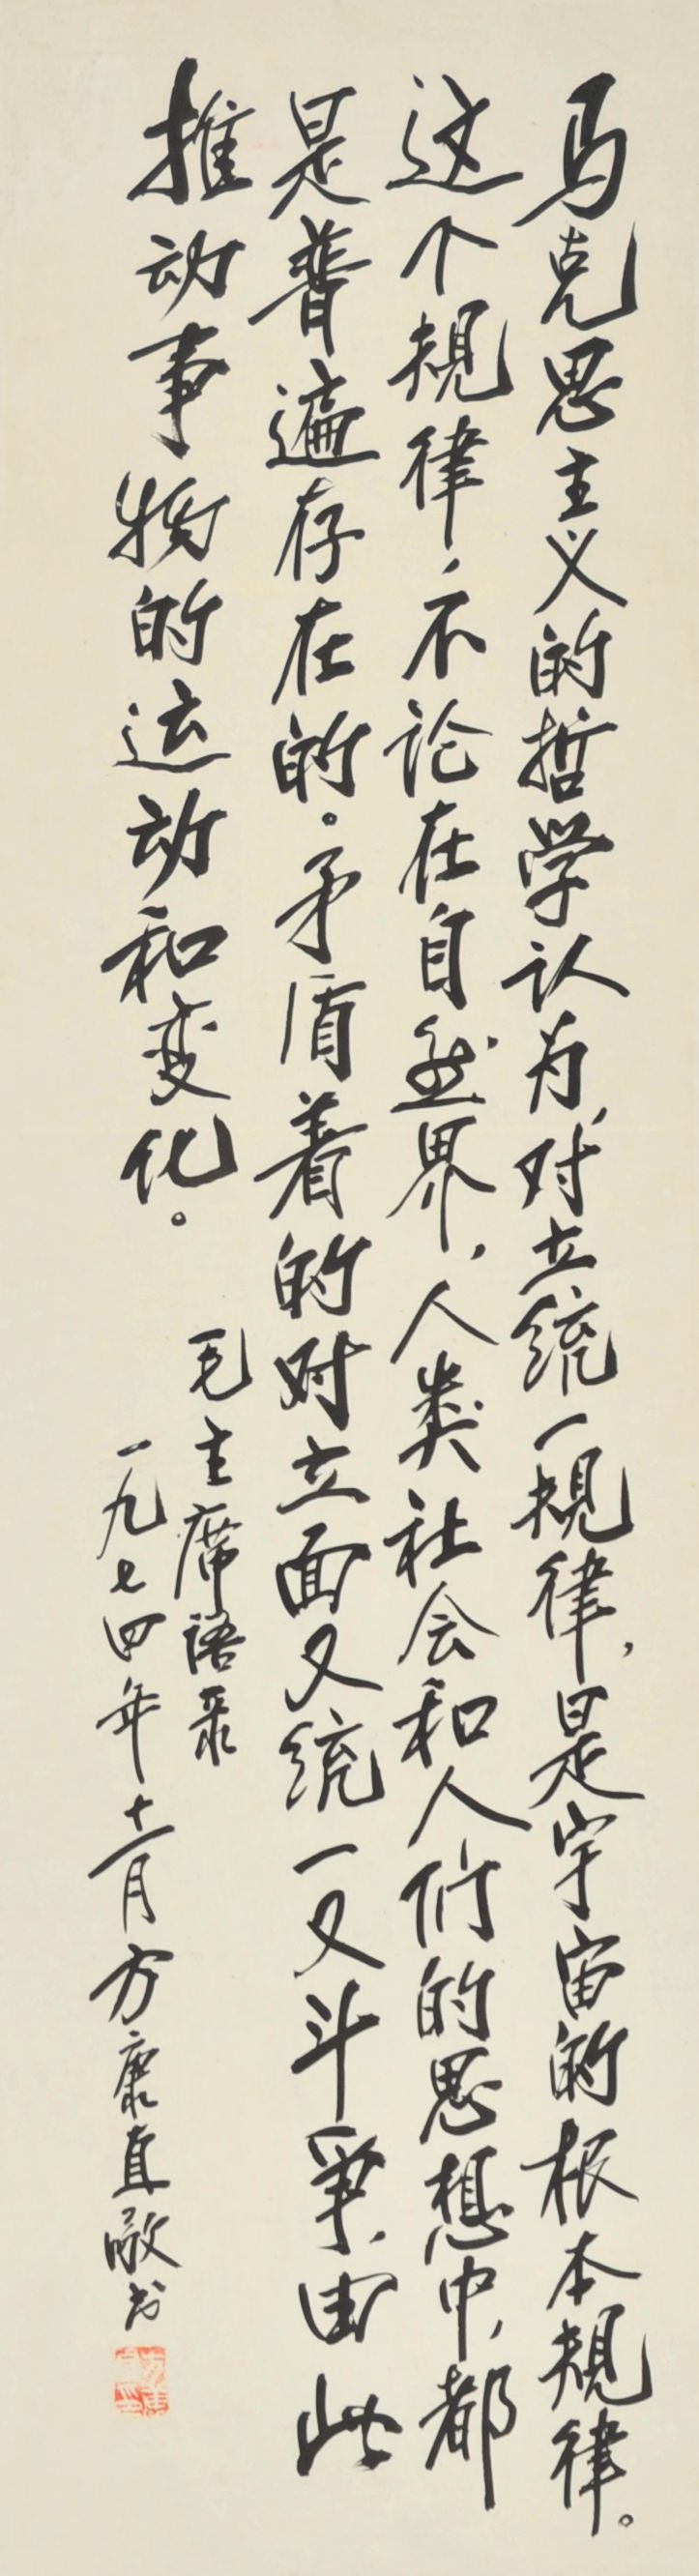 马克思主义的哲学认为,对立统一规律,是宇宙的根本规律。
这个规律,不论在自然界,人类社会和人们的思想中,都
是普遍存在的。矛盾着的对立面又统一又斗争,由此
推动事物的运动和变化。
毛主席语录
一九七四年十二月方康直敬书